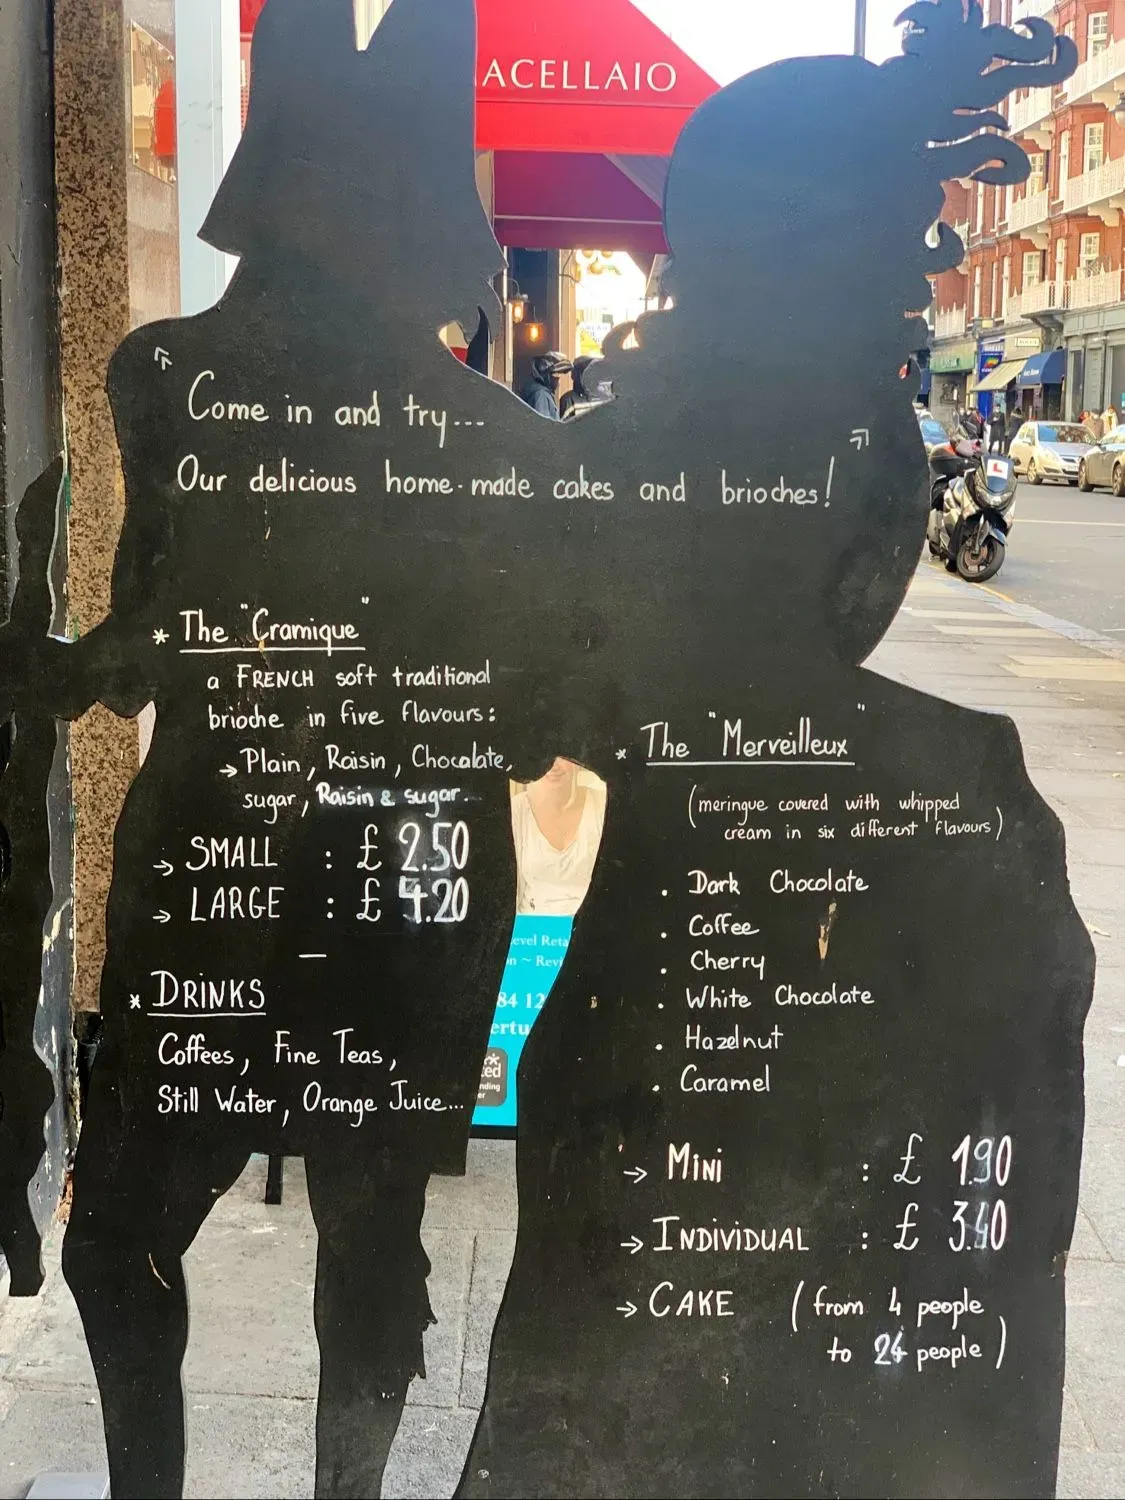 ACELLAIO
Come in and try...
Our delicious home-made cakes and brioches!
* The "Cramique"
a FRENCH soft traditional
brioche in five flavours:
→ Plain, Raisin, Chocalate,
sugar, Raisin & sugar.
→ SMALL : £ 2.50
→ LARGE : £ 4.20
—
* DRINKS
Coffees, Fine Teas,
Still Water, Orange Juice...
* The "Merveilleux"
(meringue covered with whipped
cream in six different flavours)
. Dark Chocolate
. Coffee
. Cherry
. White Chocolate
. Hazelnut
. Caramel
→ MINI : £ 1.90
→ INDIVIDUAL : £ 3.40
→ CAKE (from 4 people
to 24 people)
evel Reta
n ~ Revi
84 12
ertu
ed
nding
er
L